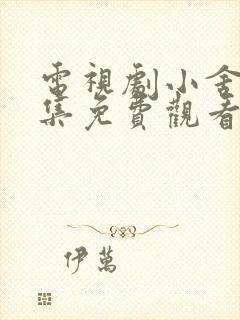 電視劇小舍
集免費觀看
伊萬